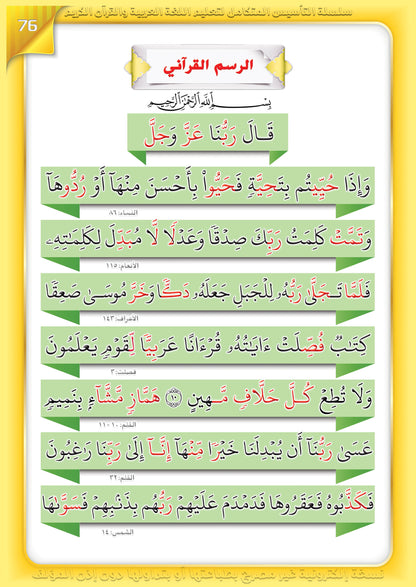 سلسلة التأسيس المتكامل لتعليم اللغة العربية والقرآن الكريم
76
الرسم القرآني
بِسْمِ اللَّهِ الرَّحْمَٰنِ الرَّحِيمِ
قَالَ رَبُّنَا عَزَّ وَجَلَّ
وَإِذَا حُيِّيتُم بِتَحِيَّةٍ فَحَيُّوا۟ بِأَحْسَنَ مِنْهَآ أَوْ رُدُّوهَآ
النساء: ٨٦
وَتَمَّتْ كَلِمَتُ رَبِّكَ صِدْقًا وَعَدْلًا لَّا مُبَدِّلَ لِكَلِمَٰتِهِۦ
الانعام: ١١٥
فَلَمَّا تَجَلَّىٰ رَبُّهُۥ لِلْجَبَلِ جَعَلَهُۥ دَكًّا وَخَرَّ مُوسَىٰ صَعِقًا
الاعراف: ١٤٣
كِتَٰبٌ فُصِّلَتْ ءَايَٰتُهُۥ قُرْءَانًا عَرَبِيًّا لِّقَوْمٍ يَعْلَمُونَ
فصلت: ٣
وَلَا تُطِعْ كُلَّ حَلَّافٍ مَّهِينٍ ١٠ هَمَّازٍ مَّشَّآءٍ بِنَمِيمٍ
القلم: ١٠-١١
عَسَىٰ رَبُّنَآ أَن يُبْدِلَنَا خَيْرًا مِّنْهَآ إِنَّآ إِلَىٰ رَبِّنَا رَٰغِبُونَ
القلم: ٣٢
فَكَذَّبُوهُ فَعَقَرُوهَا فَدَمْدَمَ عَلَيْهِمْ رَبُّهُم بِذَنۢبِهِمْ فَسَوَّىٰهَا
الشمس: ١٤
نسخة إلكترونية غير مصرح بطباعتها أو بتداولها دون إذن المؤلف